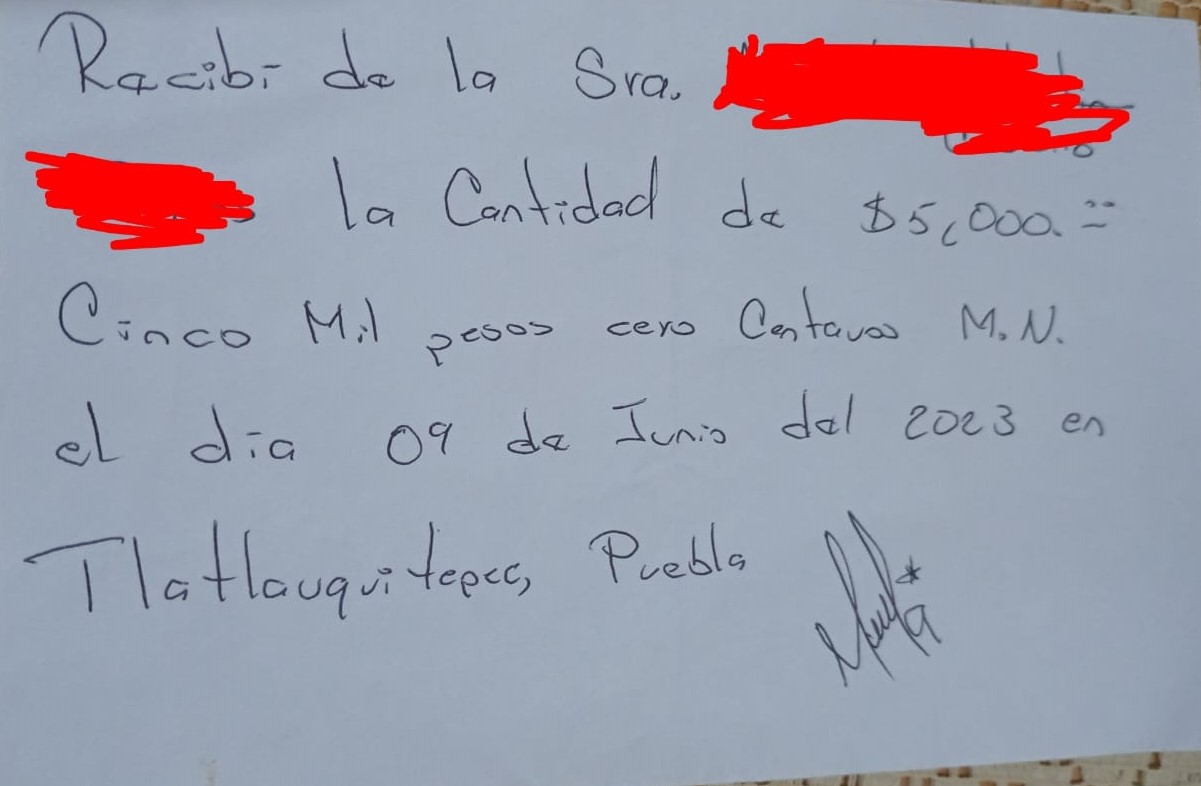 Recibí de la Sra.
la Cantidad de $5,000.=
Cinco Mil pesos cero Centavos M.N.
el día 09 de Junio del 2023 en
Tlatlauquitepec, Puebla